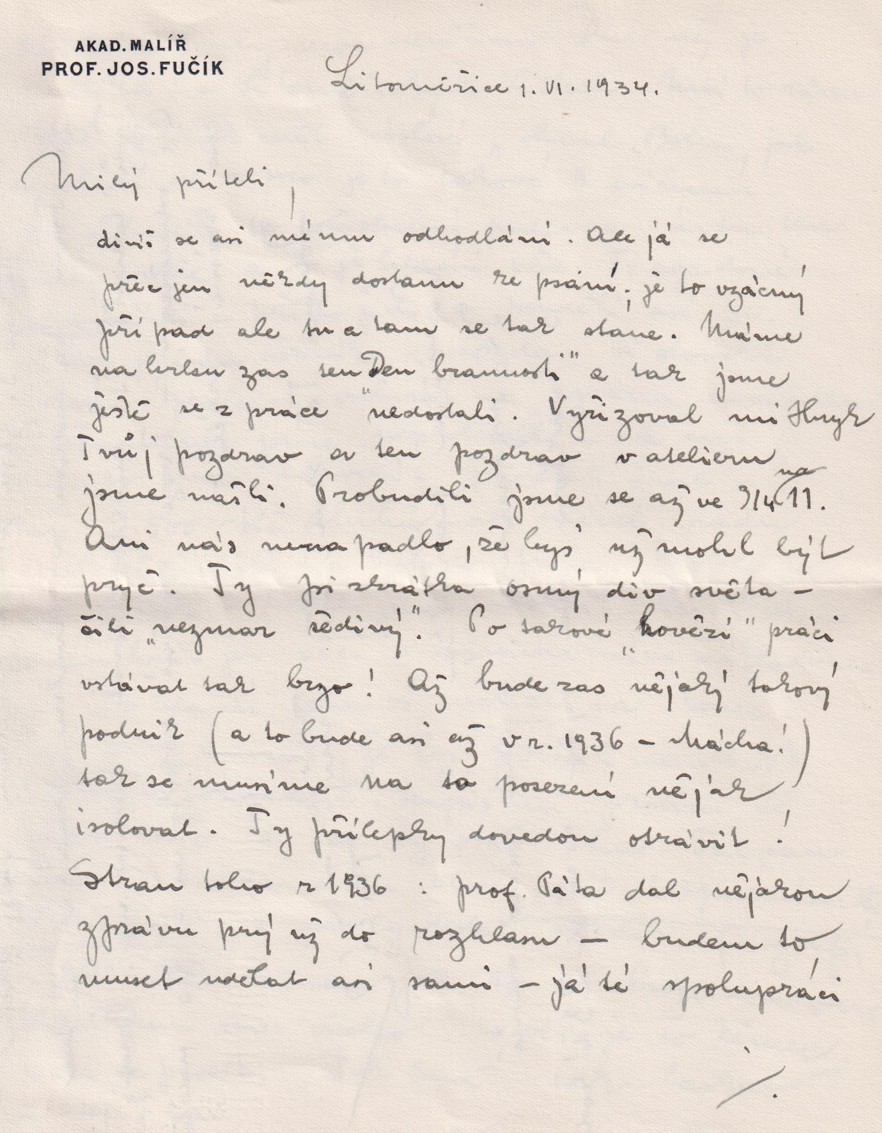 AKAD. MALÍŘ
PROF. JOS. FUČÍK
Litoměřice 1. VI. 1934.
Milý příteli,
divíš se asi mému odhodlání. Ale já se
přec jen někdy dostanu ke psaní; je to vzácný
případ ale tu a tam se tak stane. Máme
na krku zas ten Den brannosti" a tak jsme
ještě se z práce nedostali. Vyřizoval mi Hnyk
Tvůj pozdrav a ten pozdrav v atelieru na
jsme našli. Probudili jsme se až ve 3/4 11.
Ani nás nenapadlo, že bys už mohl být
pryč. Ty jsi zkrátka osmý div světa –
čili „nezmar šedivý". Po takové „hovězí" práci
vstávat tak brzo! Až bude zas nějaký takový
podnik (a to bude asi až v r. 1936 – Mácha!)
tak se musíme na to posezení nějak
isolovat. Ty přílepky dovedou otrávit!
Stran toho r 1936 : prof. Páta dal nějakou
zprávu prý už do rozhlasu – budem to
muset udělat asi sami – já té spolupráci
./.